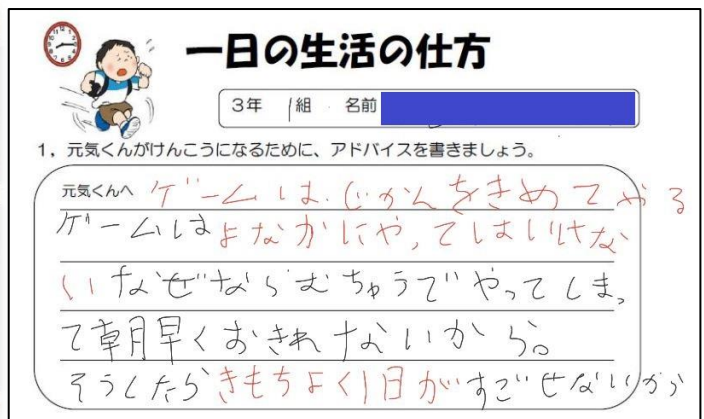 一日の生活の仕方
3年 1組 名前
1，元気くんがけんこうになるために、アドバイスを書きましょう。
元気くんへ ゲームは、じかんをきめてやる
ゲームはよなかにやってはいけな
いなぜならむちゅうでやってしまっ
て朝早くおきれないから。
そうしたらきもちよく1日がすごせないから